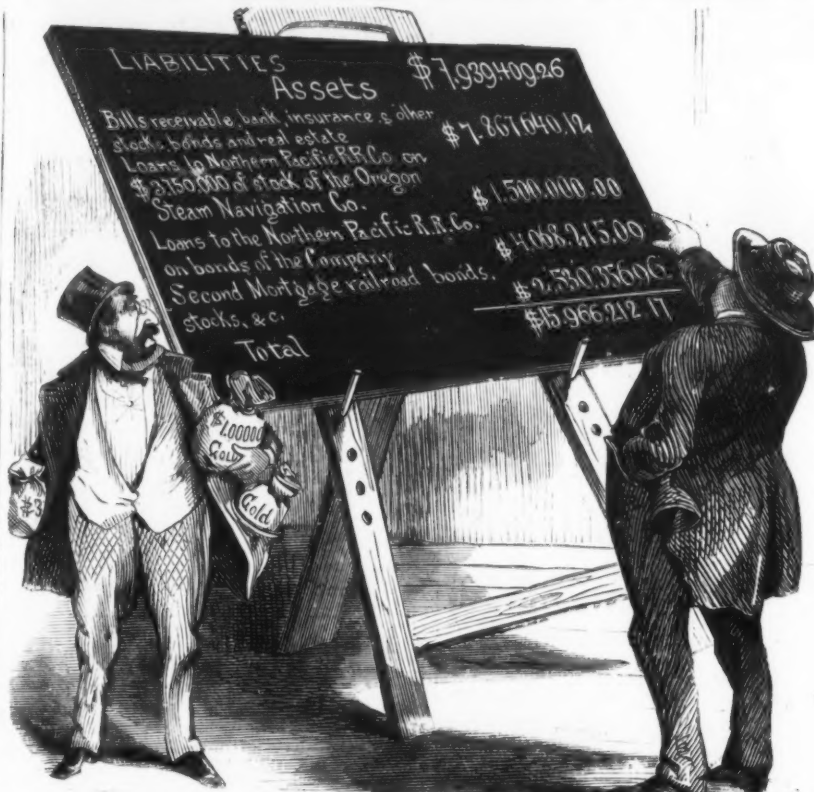 LIABILITIES $7,939,409.26
Assets
Bills receivable, bank, insurance, & other
stock, bonds and real estate $7.867,640.12
Loans to Northern Pacific R.R.Co. on
$3,150,000 of stock of the Oregon
Steam Navigation Co. $1,500,000.00
Loans to the Northern Pacific R.R.Co.
on bonds of the Company $4,068,215.00
Second Mortgage railroad bonds,
stocks, & c. $2,530,356.06
Total $15,966,212 17
$1,00000
GOLD
Gold
$3